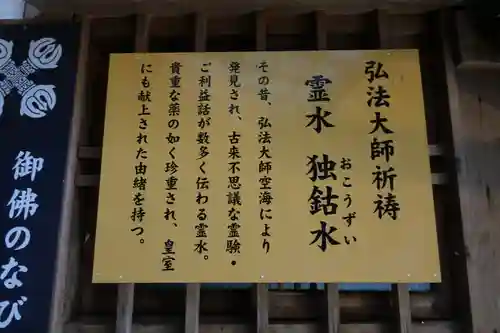 弘法大師祈祷
霊水 独鈷水
おこうずい
その昔、弘法大師空海により
発見され、古来不思議な霊験・
ご利益話が数多く伝わる霊水。
貴重な薬の如く珍重され、皇室
にも献上された由緒を持つ。
御佛のなび